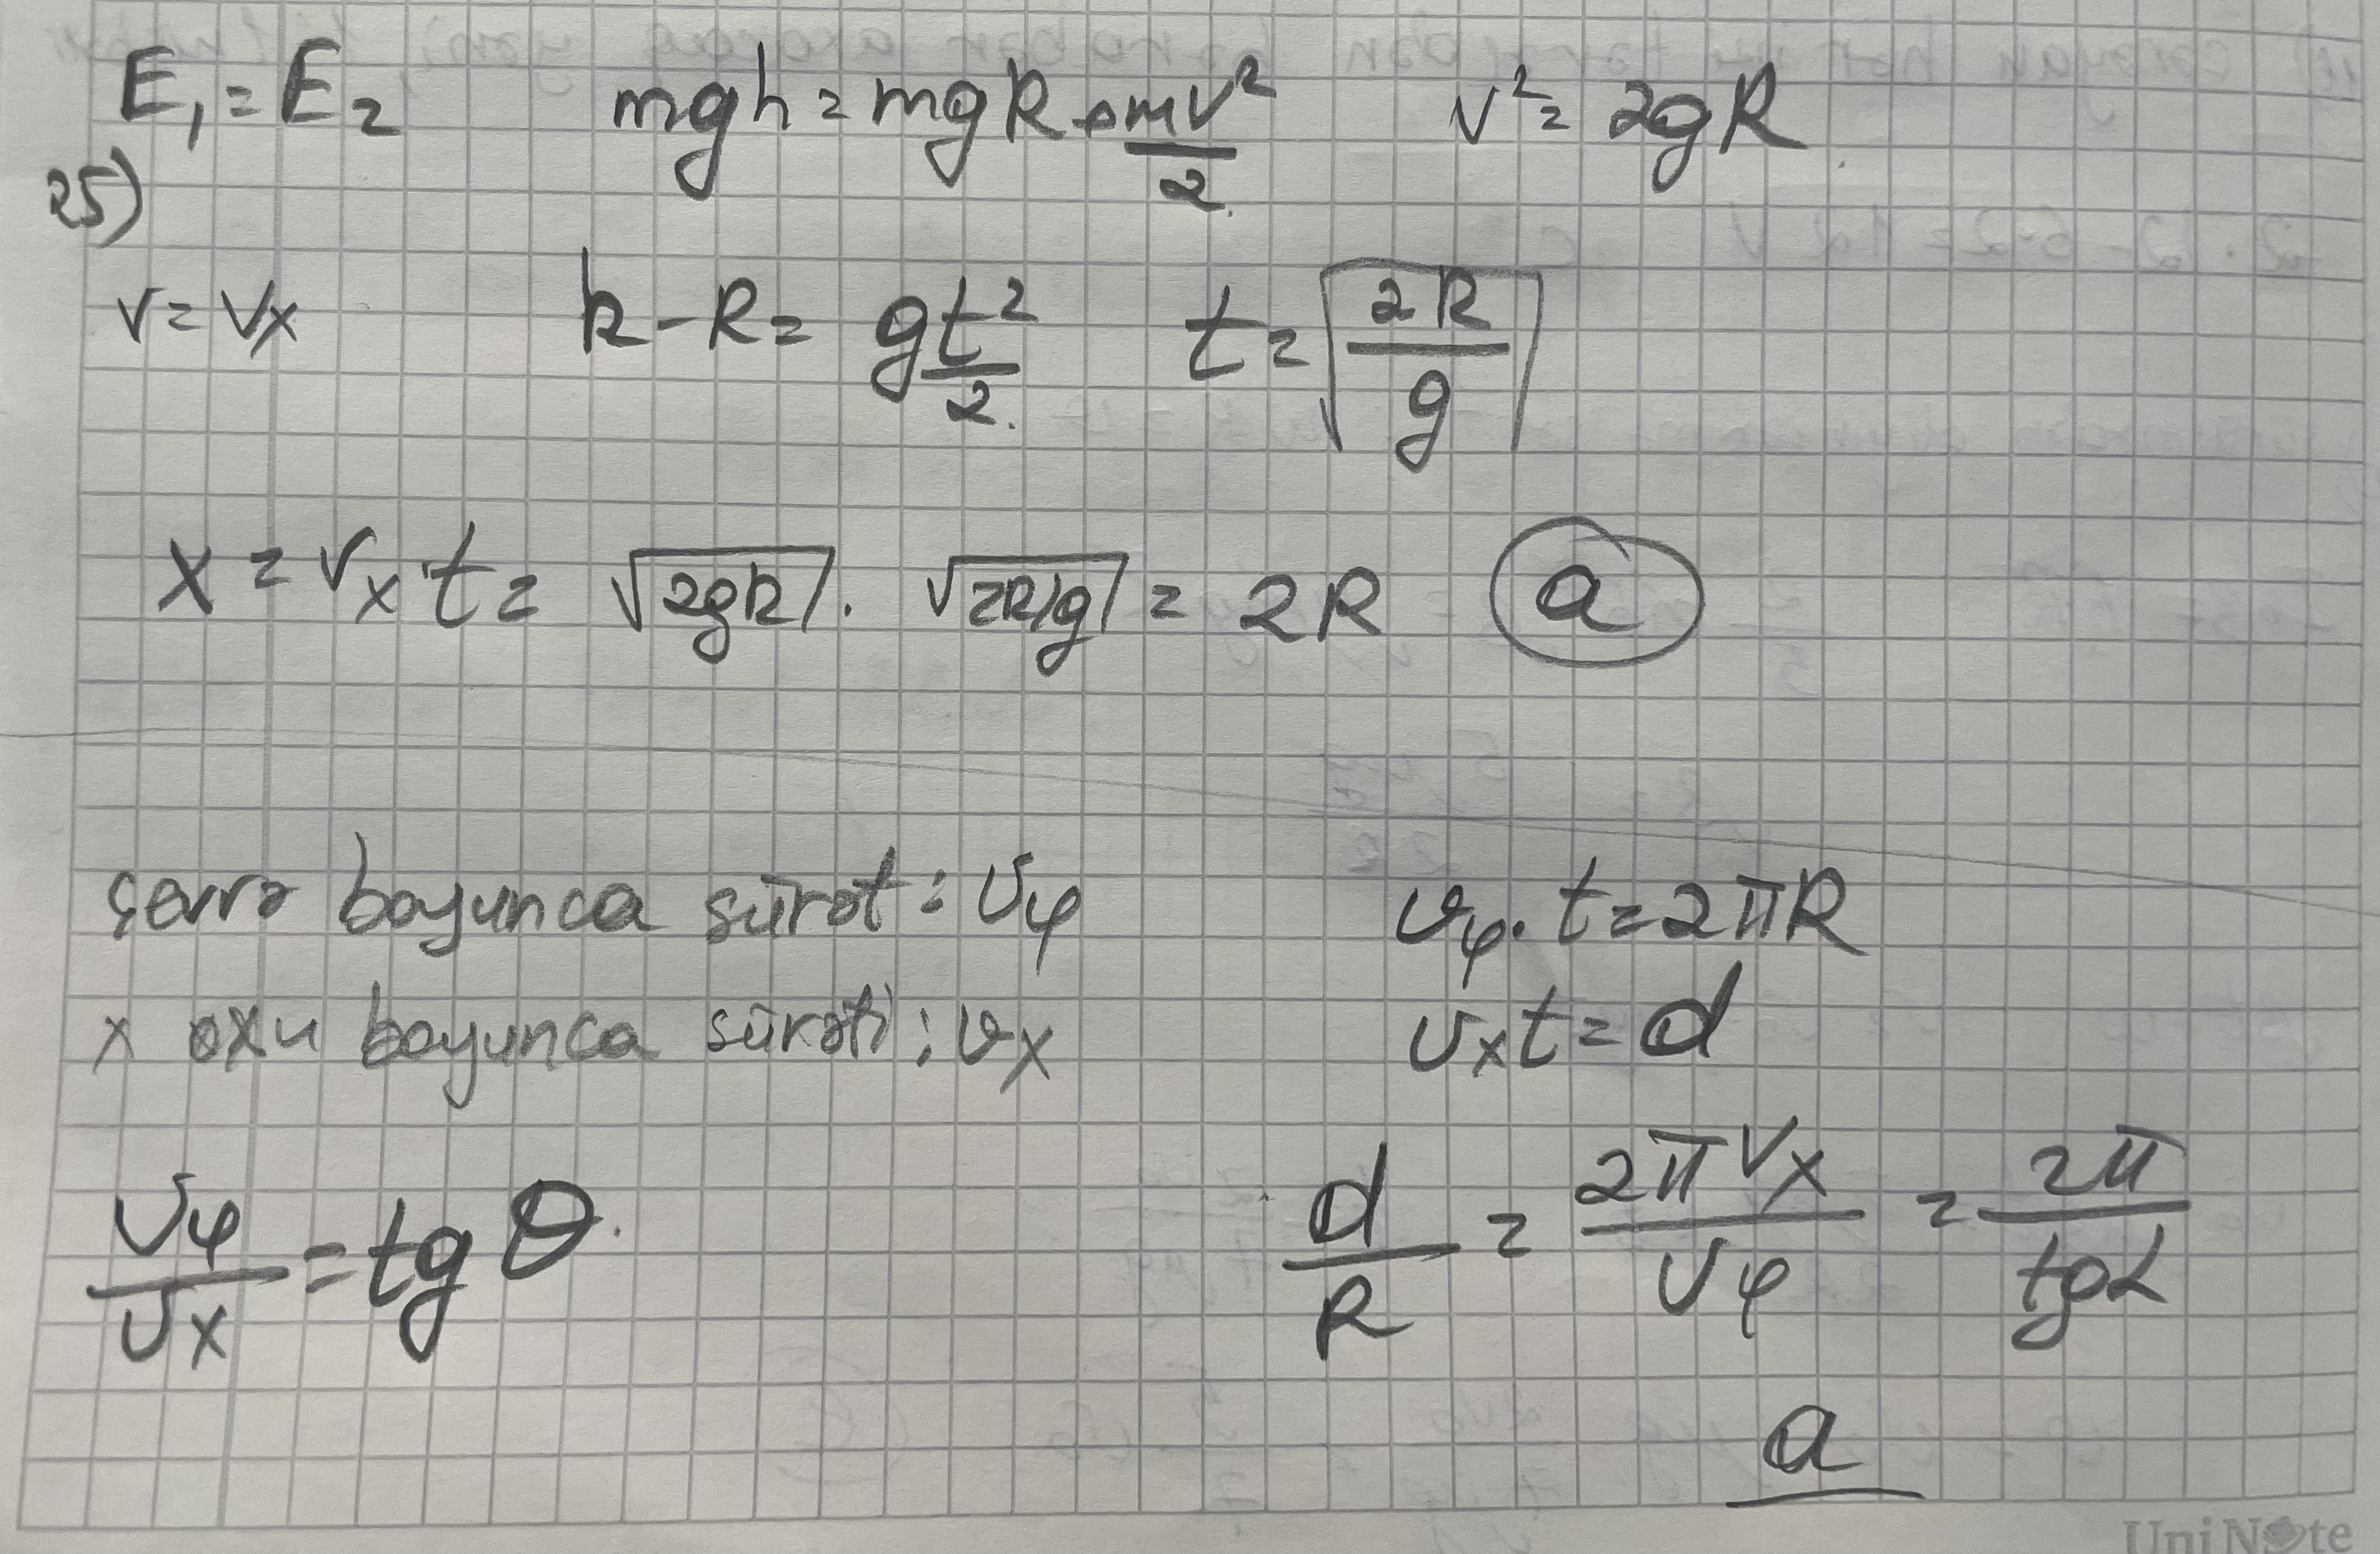 E₁ = E₂ mgh = mgR + mv²/2 v² = 2gR
25)
v = vx h - R = gt²/2 t = √(2R/g)
x = vx t = √2gR · √2R/g = 2R a
çevrə boyunca sürət : υφ υφ · t = 2πR
x oxu boyunca sürəti : υx υx t = d
υφ/υx = tg θ d/R = 2πVx/υφ = 2π/tgα
a
Uni Note